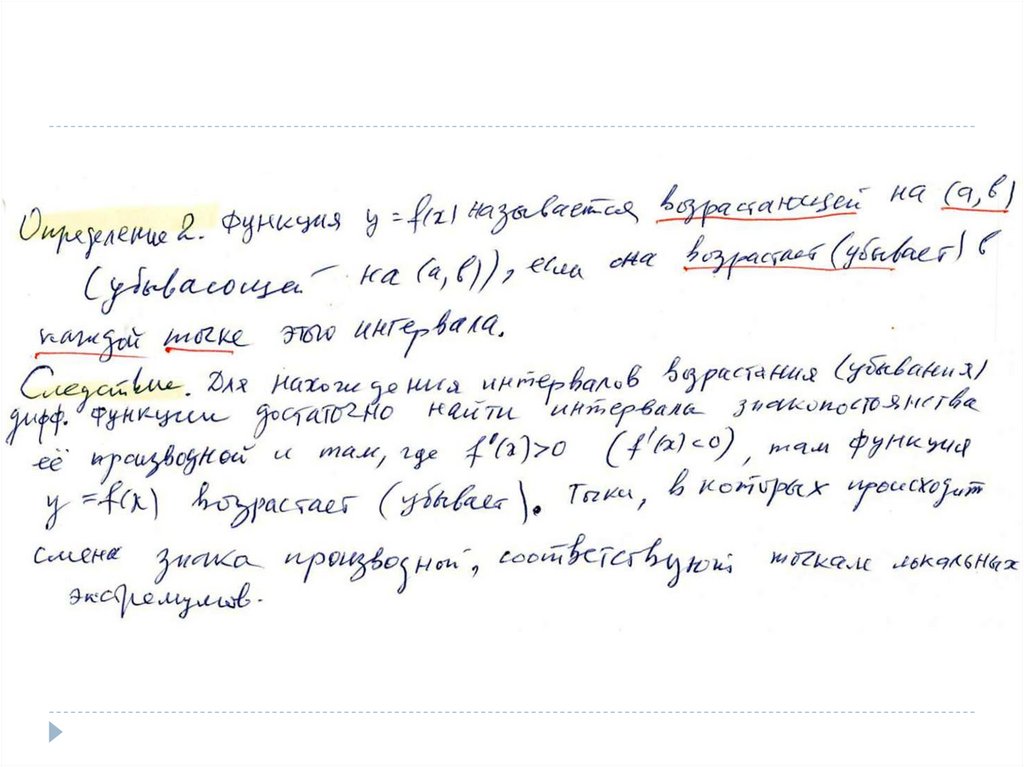 Определение 2. Функция y = f(x) называется возрастающей на (a,b)
(убывающей на (a,b)), если она возрастает (убывает) в
каждой точке этого интервала.
Следствие. Для нахождения интервалов возрастания (убывания)
дифф. функции достаточно найти интервала знакопостоянства
её производной и там, где f'(x)>0 (f'(x)<0), там функция
y = f(x) возрастает (убывает). Точки, в которых происходит
смена знака производной, соответствуют точкам локальных
экстремумов.